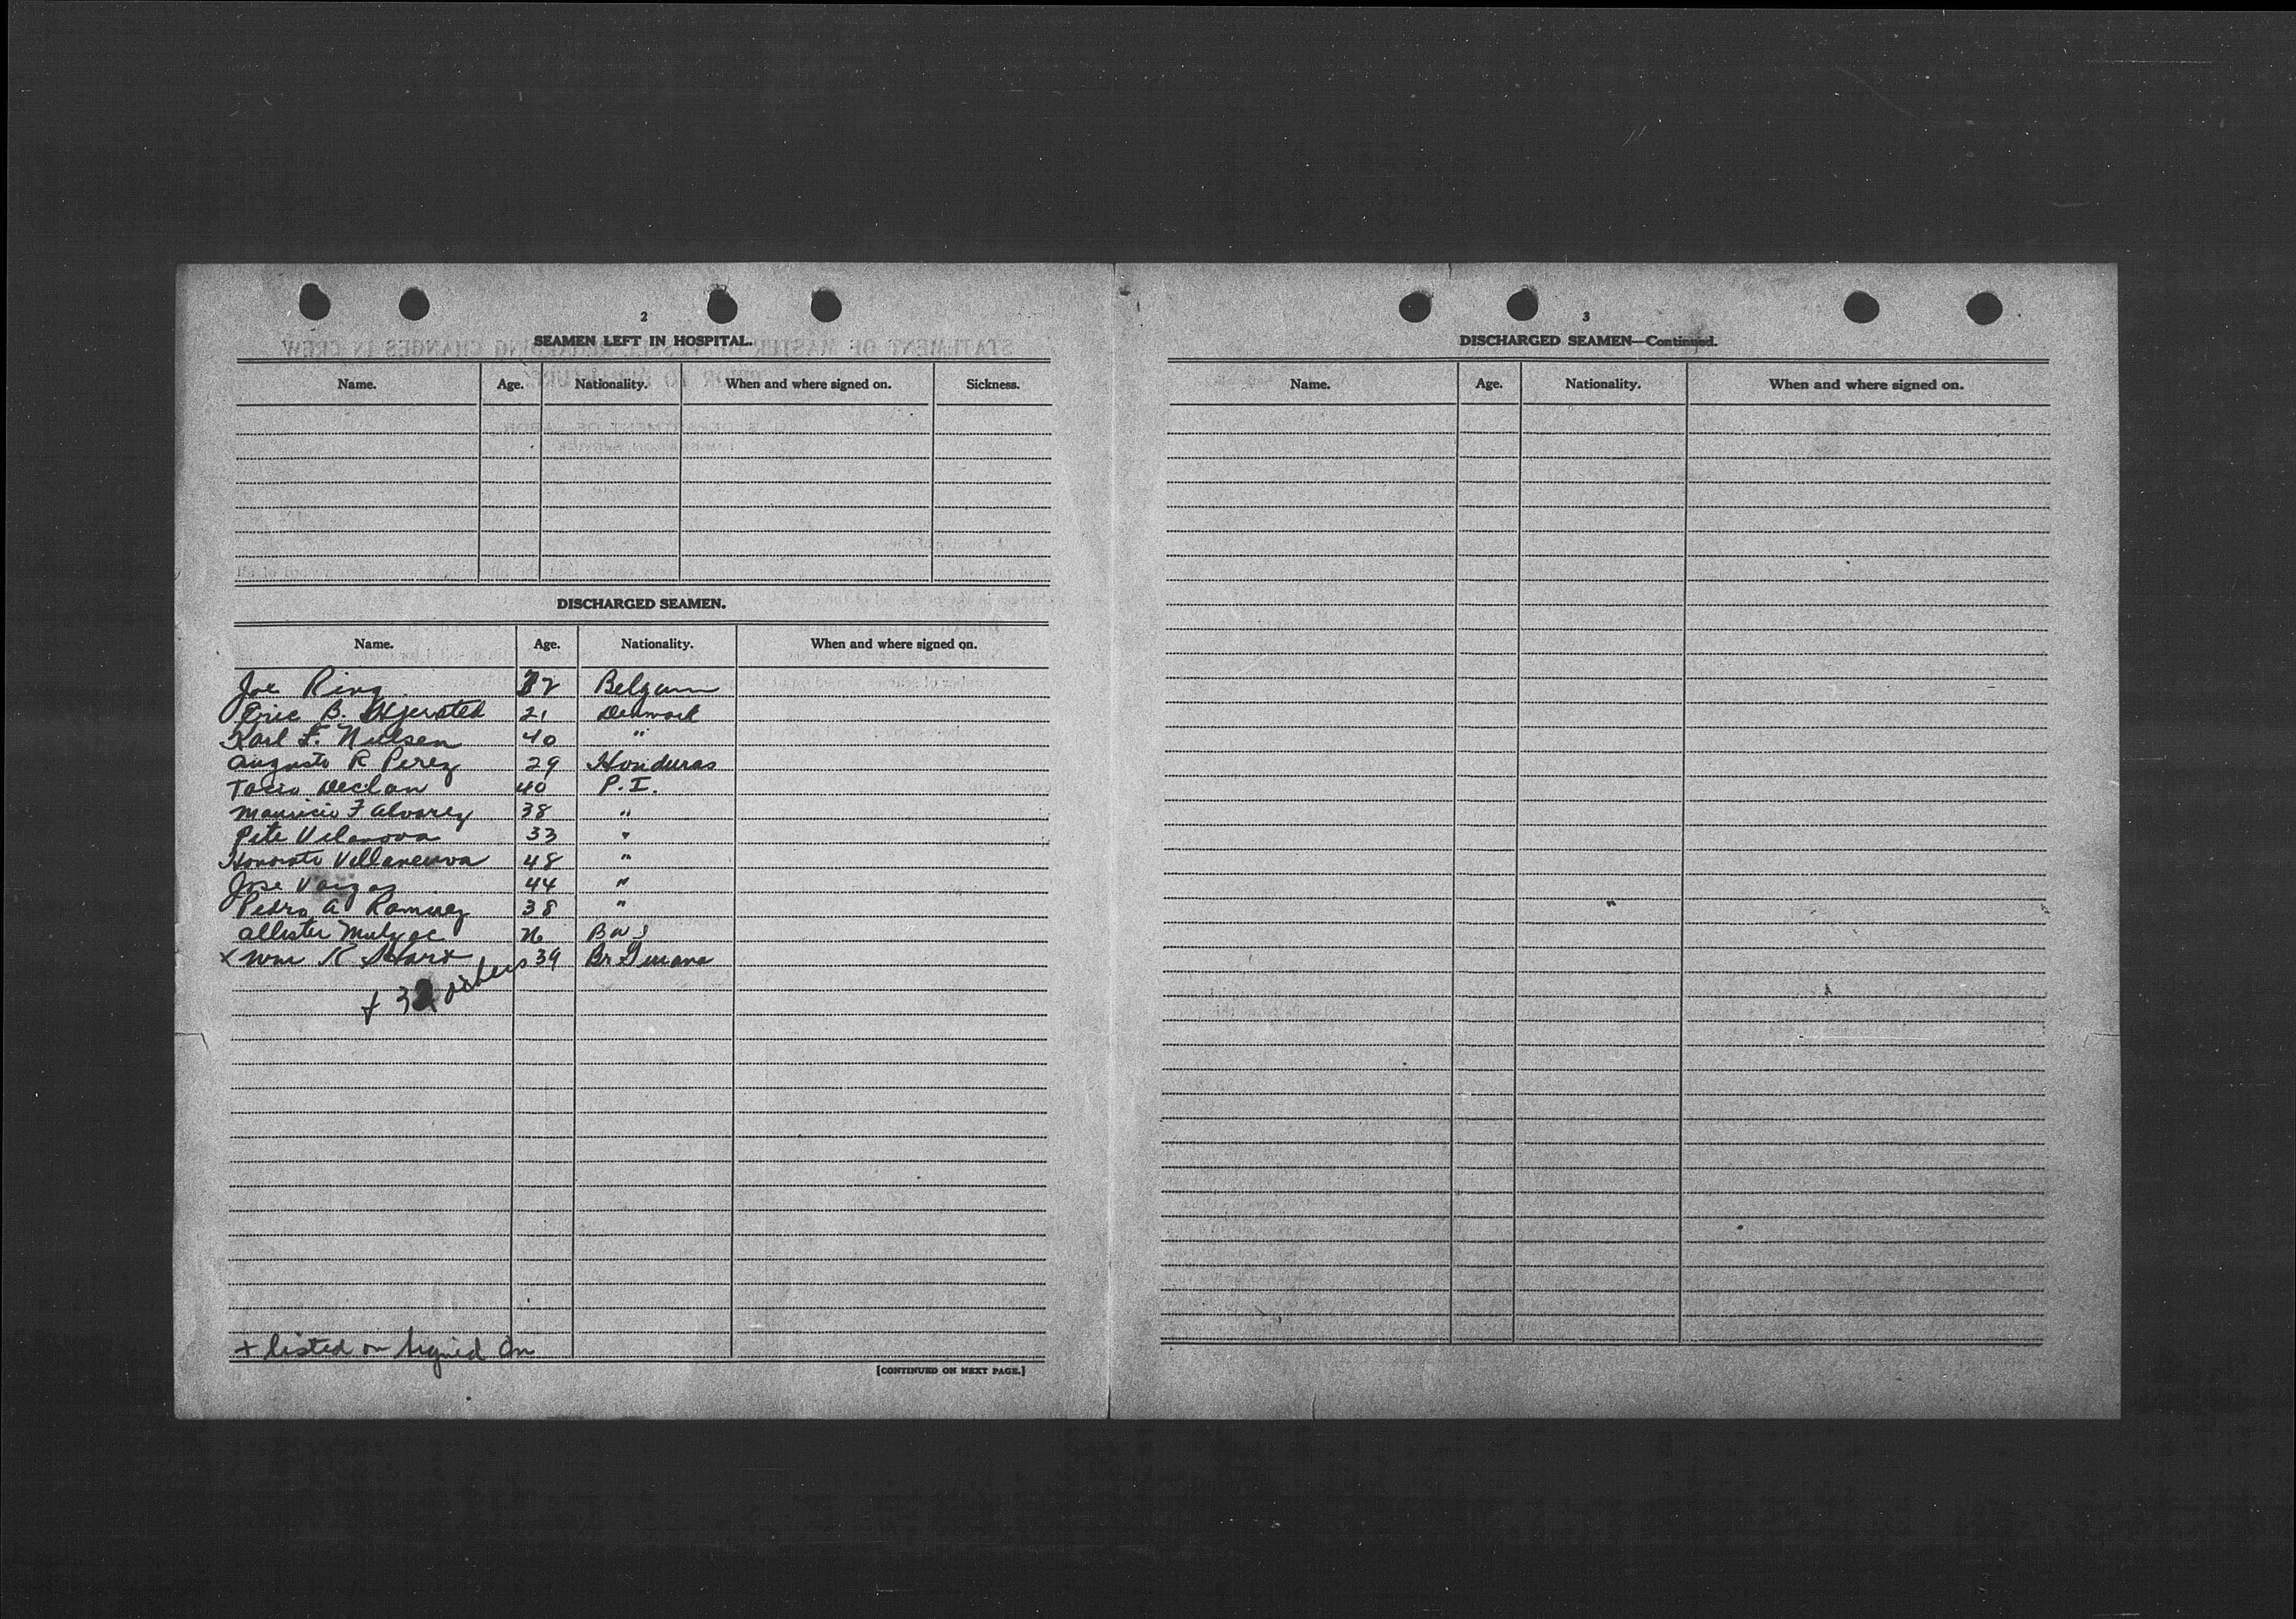 2
SEAMEN LEFT IN HOSPITAL.
Name. Age. Nationality. When and where signed on. Sickness.
DISCHARGED SEAMEN.
Name. Age. Nationality. When and where signed on.
Joe Ring 32 Belgum
Eric B. 21 Denmark
Karl F. Nielsen 40 "
Augusto R Perez 29 Honduras
Tacio Declan 40 P.I.
Mauricio F Alvarez 38 "
Pete Vilanova 33 "
Honorato Villaneuva 48 "
Jose Vargas 44 "
Pedro A Ramirez 38 "
Allister Mulzac 26 BWI
x Wm R 39 Br Guiana
+ 32 others
+ listed on Signed On
[CONTINUED ON NEXT PAGE.]
3
DISCHARGED SEAMEN—Continued.
Name. Age. Nationality. When and where signed on.
"